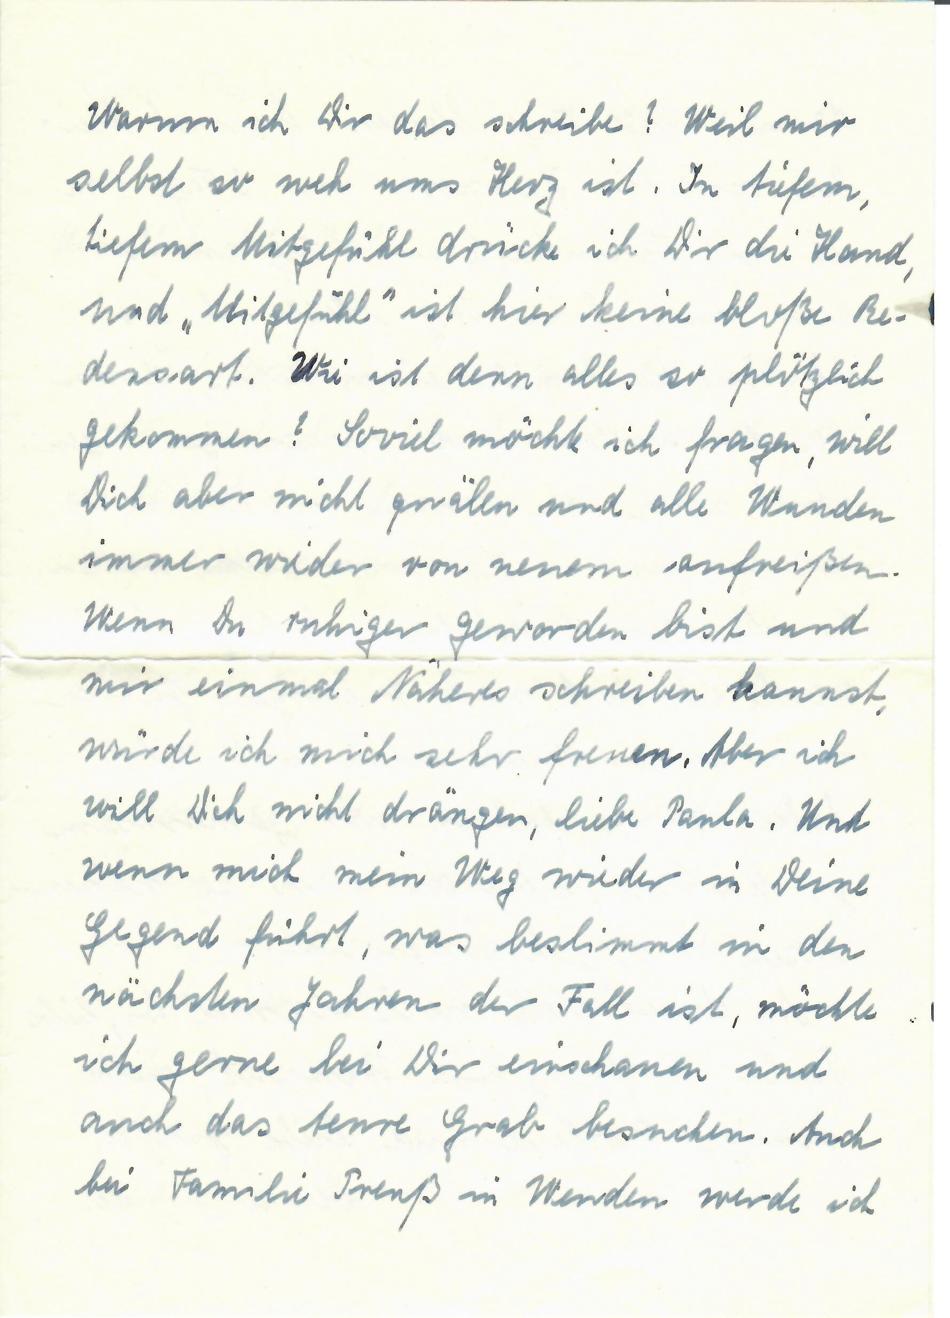 Warum ich Dir das schreibe? Weil mir
selbst so weh ums Herz ist. In tiefem,
tiefem Mitgefühl drücke ich Dir die Hand,
und „Mitgefühl" ist hier keine bloße Re-
densart. Wie ist denn alles so plötzlich
gekommen? Soviel möchte ich fragen, will
Dich aber nicht quälen und alle Wunden
immer wieder von neuem aufreißen.
Wenn Du ruhiger geworden bist und
mir einmal Näheres schreiben kannst,
würde ich mich sehr freuen. Aber ich
will Dich nicht drängen, liebe Paula. Und
wenn mich mein Weg wieder in Deine
Gegend führt, was bestimmt in den
nächsten Jahren der Fall ist, möchte
ich gerne bei Dir einschauen und
auch das teure Grab besuchen. Auch
bei Familie Preuß in Wenden werde ich